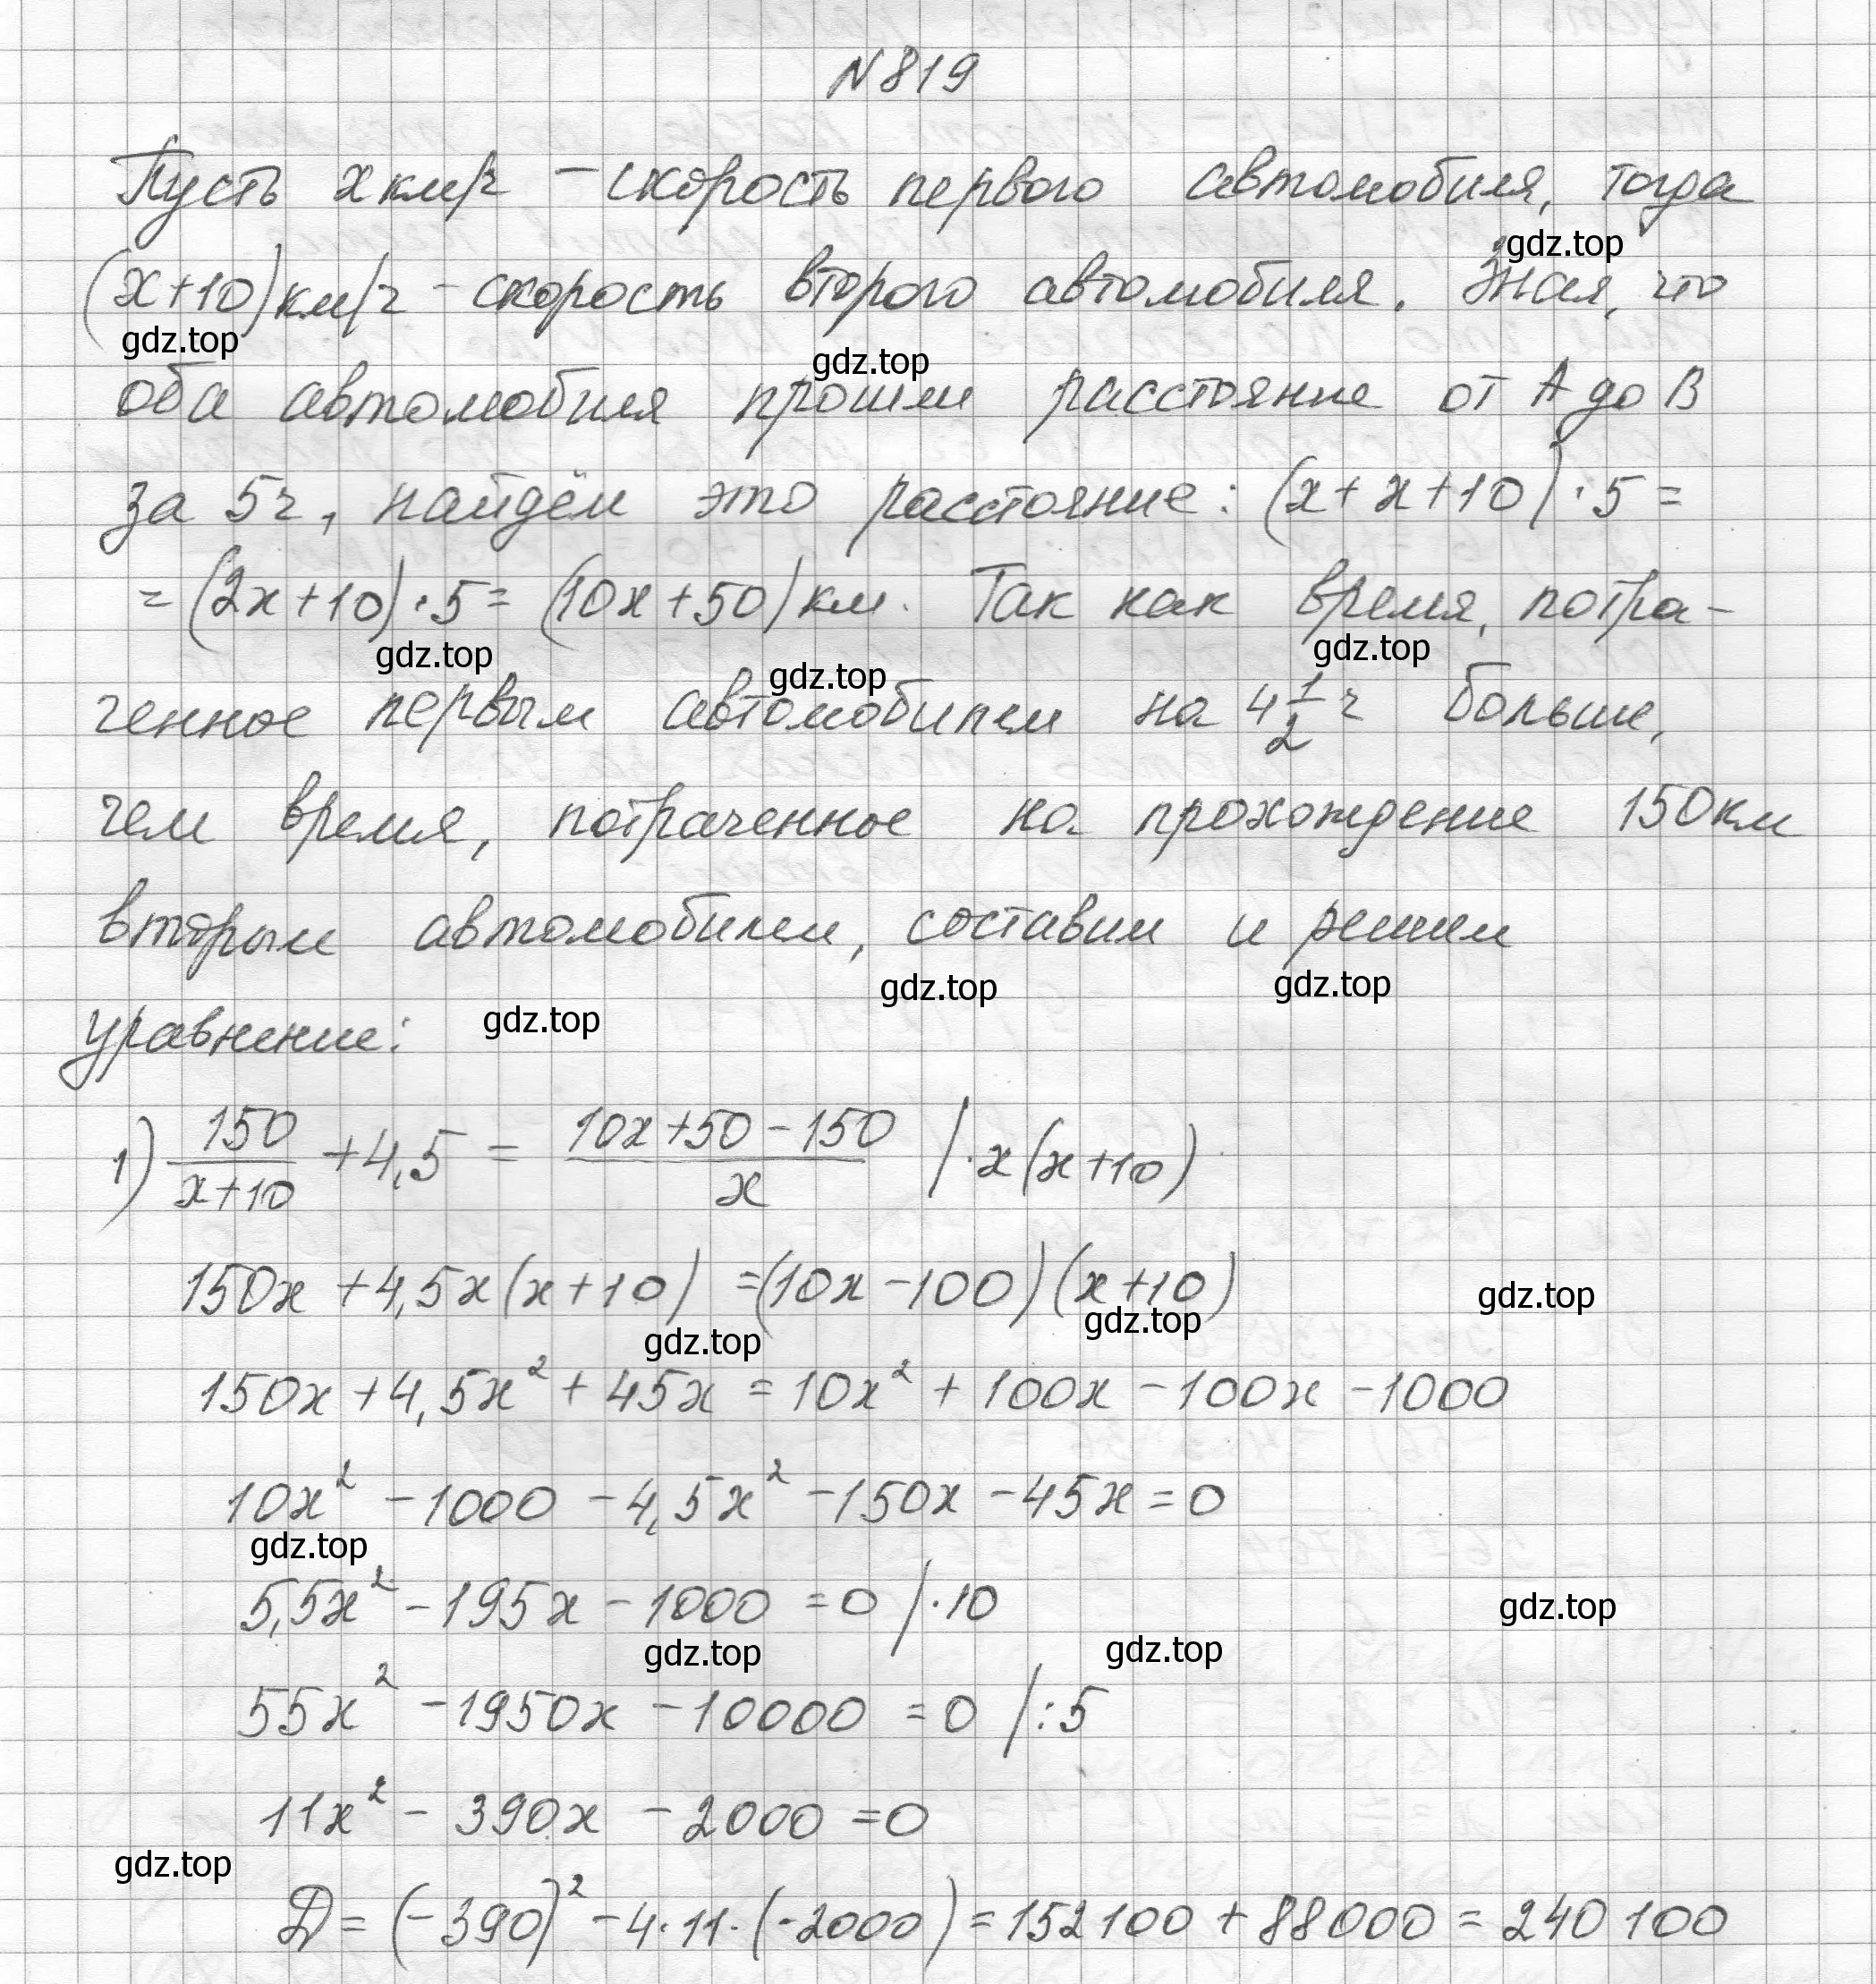 N 819
Пусть x км/ч – скорость первого автомобиля, тогда
gdz.top
(x+10) км/ч – скорость второго автомобиля. Зная, что
gdz.top
gdz.top
оба автомобиля прошли расстояние от A до B
за 5ч, найдём это расстояние: (x+x+10)·5=
=(2x+10)·5=(10x+50) км. Так как время, потра-
gdz.top
gdz.top
gdz.top
ченное первым автомобилем на 4 1/2 ч больше,
чем время, потраченное на прохождение 150 км
вторым автомобилем, составим и решим
gdz.top
gdz.top
уравнение:
gdz.top
1) 150/(x+10) + 4,5 = (10x+50-150)/x |·x(x+10)
150x+4,5x(x+10)=(10x-100)(x+10)
gdz.top
gdz.top
gdz.top
150x+4,5x²+45x=10x²+100x-100x-1000
10x²-1000-4,5x²-150x-45x=0
gdz.top
5,5x²-195x-1000=0 |·10
gdz.top
gdz.top
gdz.top
55x²-1950x-10000=0 |:5
11x²-390x-2000=0
gdz.top
D=(-390)²-4·11·(-2000)=152100+88000=240100